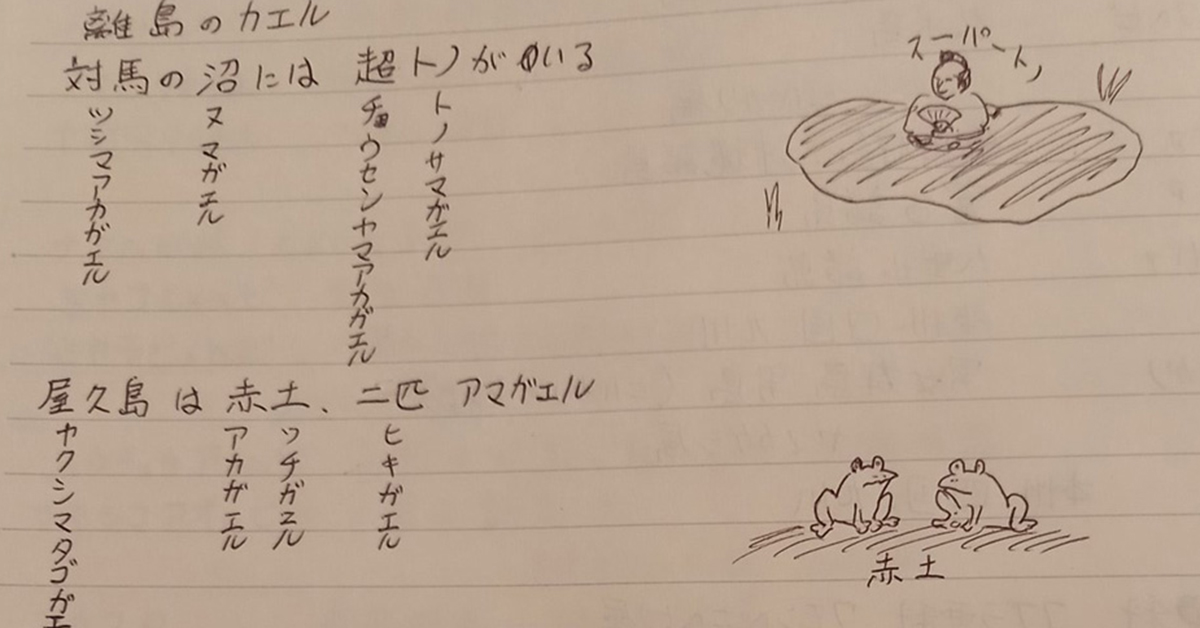 離島のカエル
対馬の沼には 超トノがいる
ツシマアカガエル
ヌマガエル
チョウセンヤマアカガエル
トノサマガエル
スーパートノ
屋久島は赤土、二匹 アマガエル
ヤクシマタゴガエ
アカガエル
ツチガエル
ヒキガエル
赤土